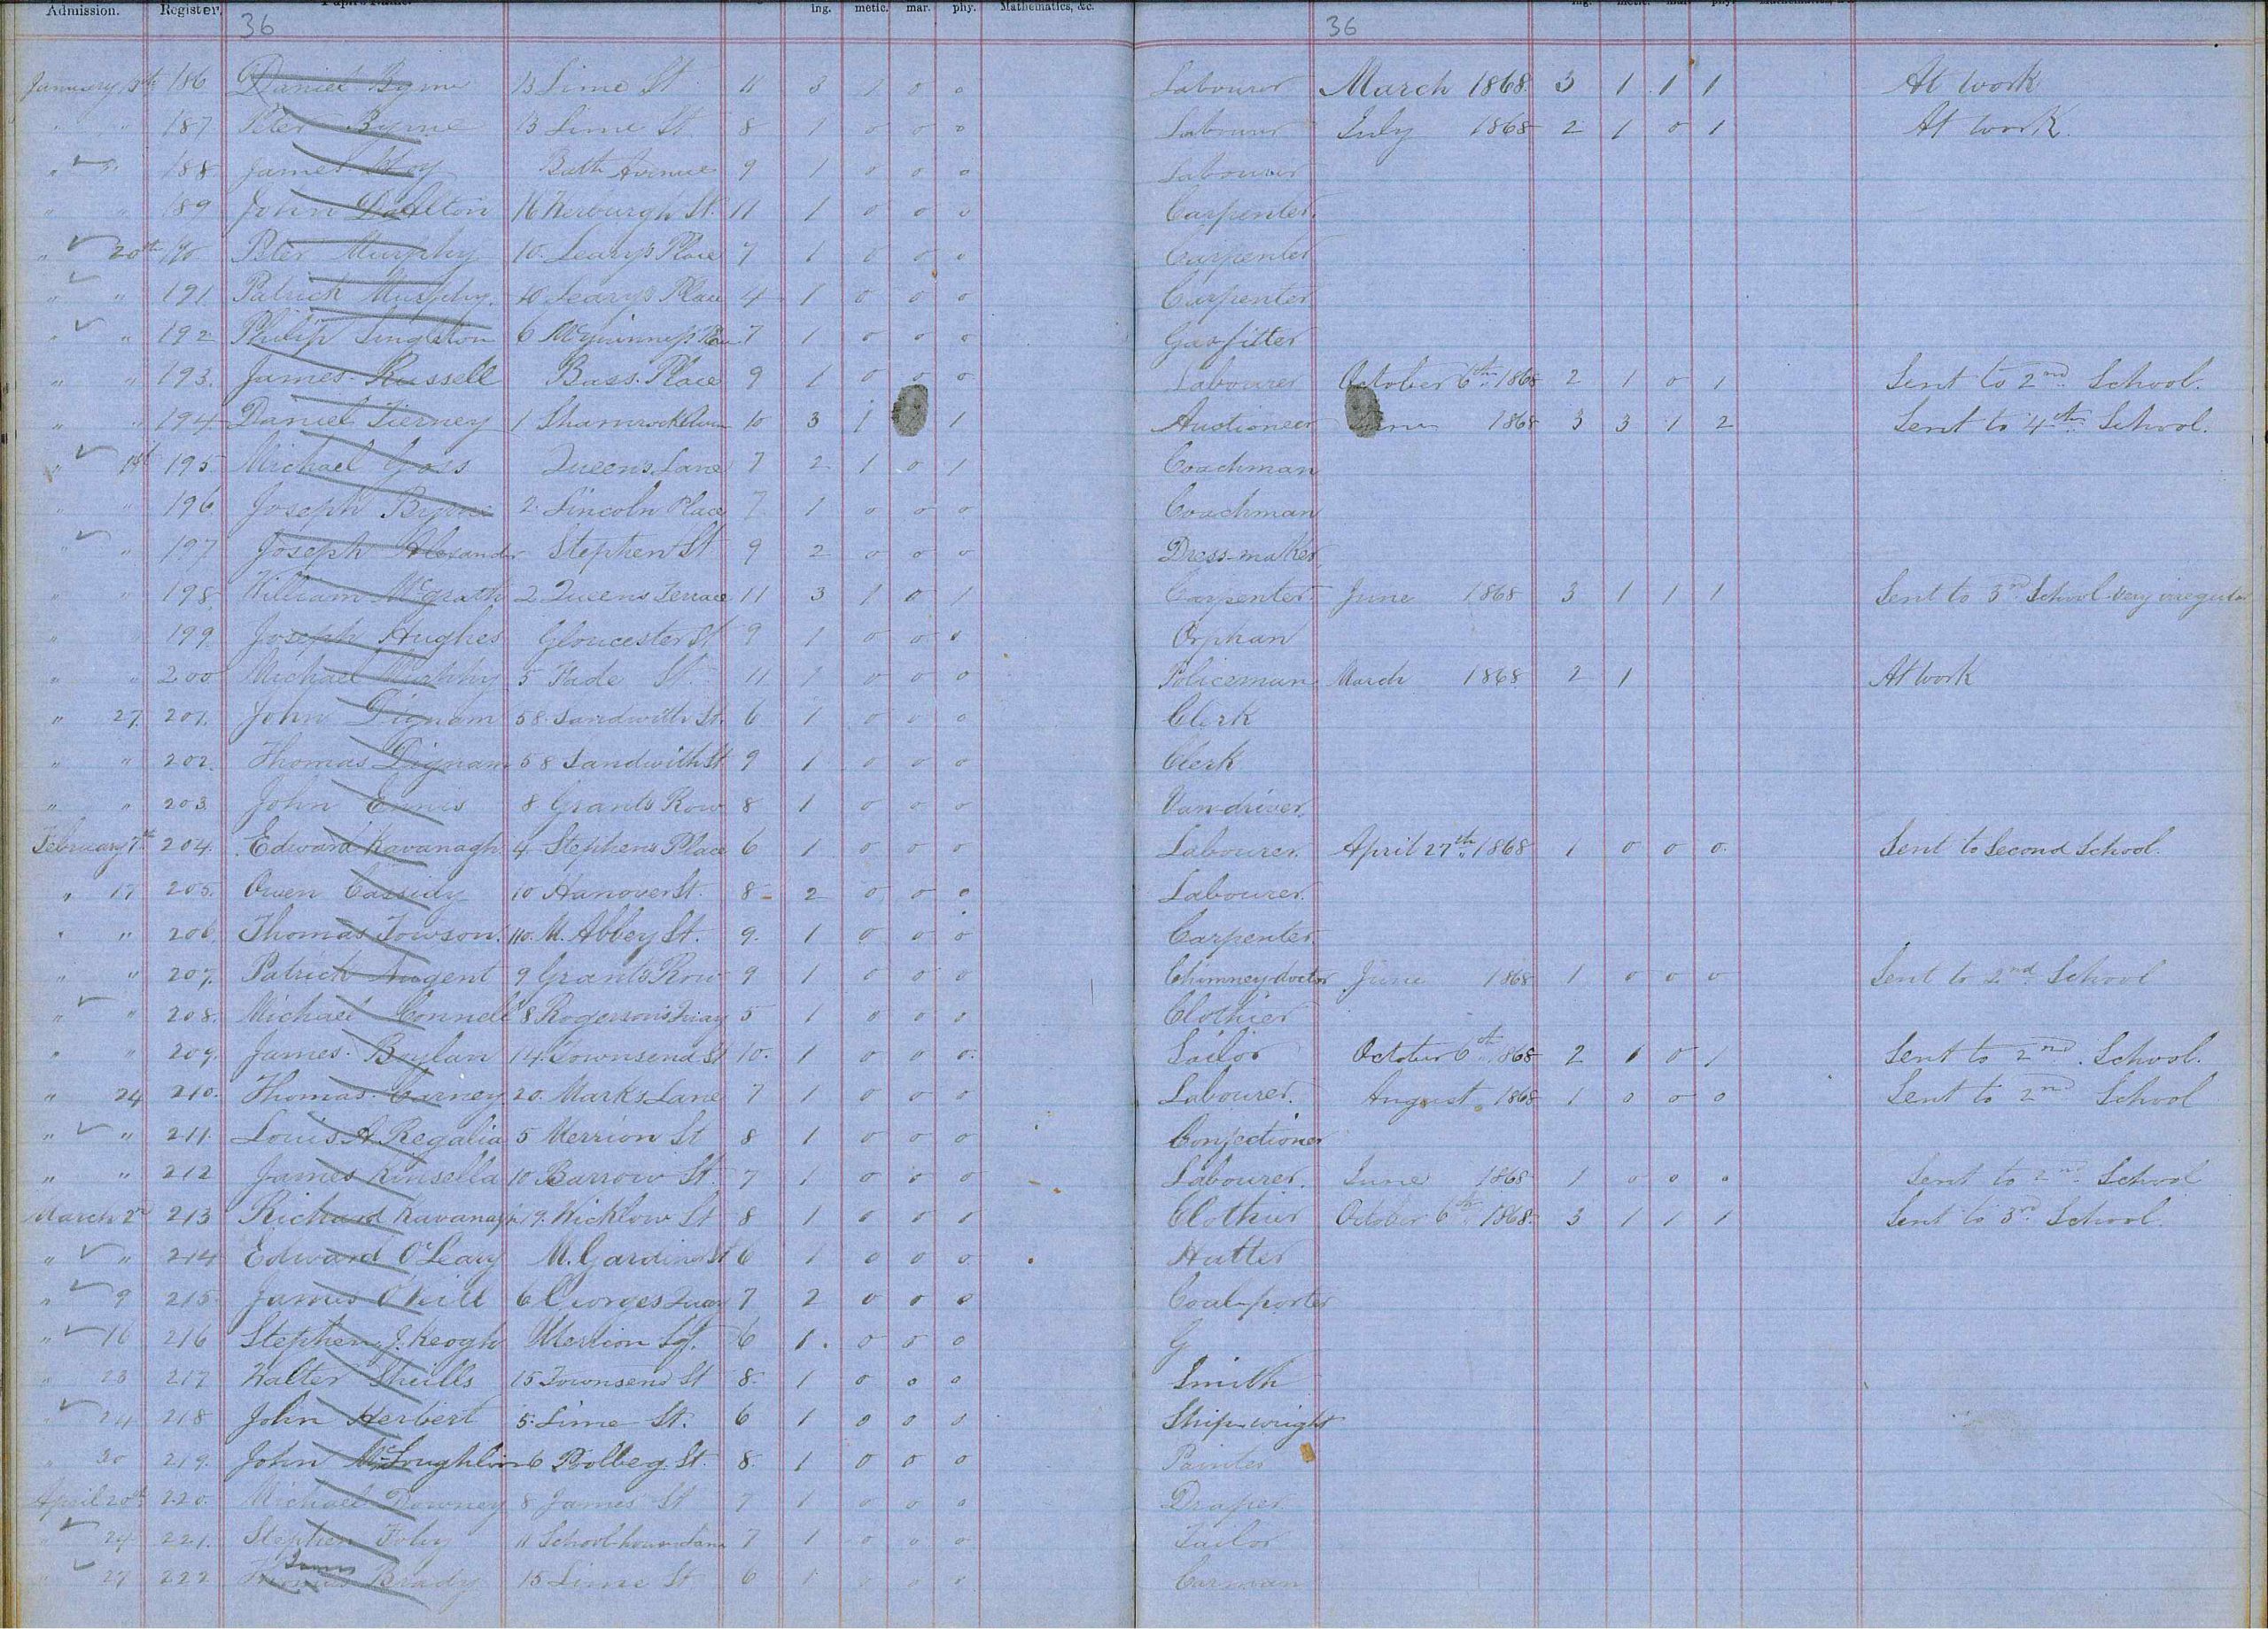 Admission. Register. Pupil's Name. ing. metic. mar. phy. Mathematics, &c. ing. metic. mar. phy. Mathematics, &c.
36 36
January 13th 186 Daniel Byrne 13 Lime St 11 3 1 0 0 Labourer March 1868 3 1 1 1 At work
" " 187 Peter Byrne 13 Lime St 8 1 0 0 0 Labourer July 1868 2 1 0 1 At work.
" " 188 James Bath Avenue 9 1 0 0 0 Labourer
" " 189 John Dallton 16 St. 11 1 0 0 0 Carpenter.
" 20th 190 Peter Murphy 10. Leary's Place 7 1 0 0 0 Carpenter
" " 191 Patrick Murphy. 10 Leary's Place 4 1 0 0 0 Carpenter
" " 192 Philip Singleton 6 McGuinness Place 7 1 0 0 0 Gasfitter
" " 193. James Russell Bass Place 9 1 0 0 0 Labourer October 6th 1868 2 1 0 1 Sent to 2nd School.
" " 194 Daniel Tierney 1 Shamrock 10 3 1 1 Auctioneer June 1868 3 3 1 2 Sent to 4th School.
" 195 Michael Goss Queens Lane 7 2 1 0 1 Coachman
" " 196 Joseph Byrne 2 Lincoln Place 7 1 0 0 0 Coachman
" " 197 Joseph Alexander Stephen St 9 2 0 0 0 Dress-maker
" " 198 William McGrath 2 Queens Terrace 11 3 1 0 1 Carpenter June 1868 3 1 1 1 Sent to 3rd School very irregular
" " 199 Joseph Hughes Gloucester St 9 1 0 0 0 Orphan
" " 200 Michael Murphy 5 Fade St 11 1 0 0 0 Policeman March 1868 2 1 At work
" 27 201. John Dignam 58. Sandwith St. 6 1 0 0 0 Clerk
" " 202. Thomas Dignam 58 Sandwith St 9 1 0 0 0 Clerk
" " 203 John Ennis 8 Grants Row 8 1 0 0 0 Van-driver.
February 7th 204. Edward Kavanagh 4 Stephens Place 6 1 0 0 0 Labourer. April 27th 1868 1 0 0 0. Sent to Second School.
" 17 205. Owen Cassidy 10 Hanover St. 8 2 0 0 0 Labourer.
" " 206. Thomas Towson. 110. M. Abbey St. 9. 1 0 0 0 Carpenter.
" " 207. Patrick Nugent 9 Grants Row 9 1 0 0 0 Chimney doctor June 1868 1 0 0 0 Sent to 2nd School
" " 208. Michael Connell 8 Rogerson's Quay 5 1 0 0 0 Clothier
" " 209. James Boylan 14 Townsend St 10. 1 0 0 0. Sailor October 6th 1868 2 1 0 1 Sent to 2nd School.
" 24 210. Thomas Carney 20. Marks Lane 7 1 0 0 0 Labourer. August 1868 1 0 0 0 Sent to 2nd School
" " 211. Louis A. Regalia 5 Merrion St 8 1 0 0 0 Confectioner
" " 212 James Kinsella 10 Barrow St. 7 1 0 0 0 Labourer. June 1868 1 0 0 0 Sent to 2nd School
March 2nd 213 Richard Kavanagh 19. Wicklow St 8 1 0 0 0 Clothier October 6th 1868. 3 1 1 1 Sent to 3rd School.
" " 214 Edward O'Leary M. Gardiner St 6 1 0 0 0 Hatter
" 9 215 James O'Neill 6 Georges Quay 7 2 0 0 0 Coal-porter
" 16 216 Stephen J. Keogh Merrion Sq. 6 1. 0 0 0 G
" 23 217 Walter Sheills 15 Townsend St 8. 1 0 0 0 Smith
" 24 218 John Herbert 5. Lime St. 6 1 0 0 0 Ship-wright
" 30 219. John McLoughlin 6 Poolbeg. St. 8. 1 0 0 0 Painter
April 20th 220. Michael Downey 8 James St 7 1 0 0 0 Draper
" 24 221. Stephen Foley 11 School-house Lane 7 1 0 0 0 Tailor
" 27 222 James Thomas Brady 15 Lime St 6 1 0 0 0 Carman